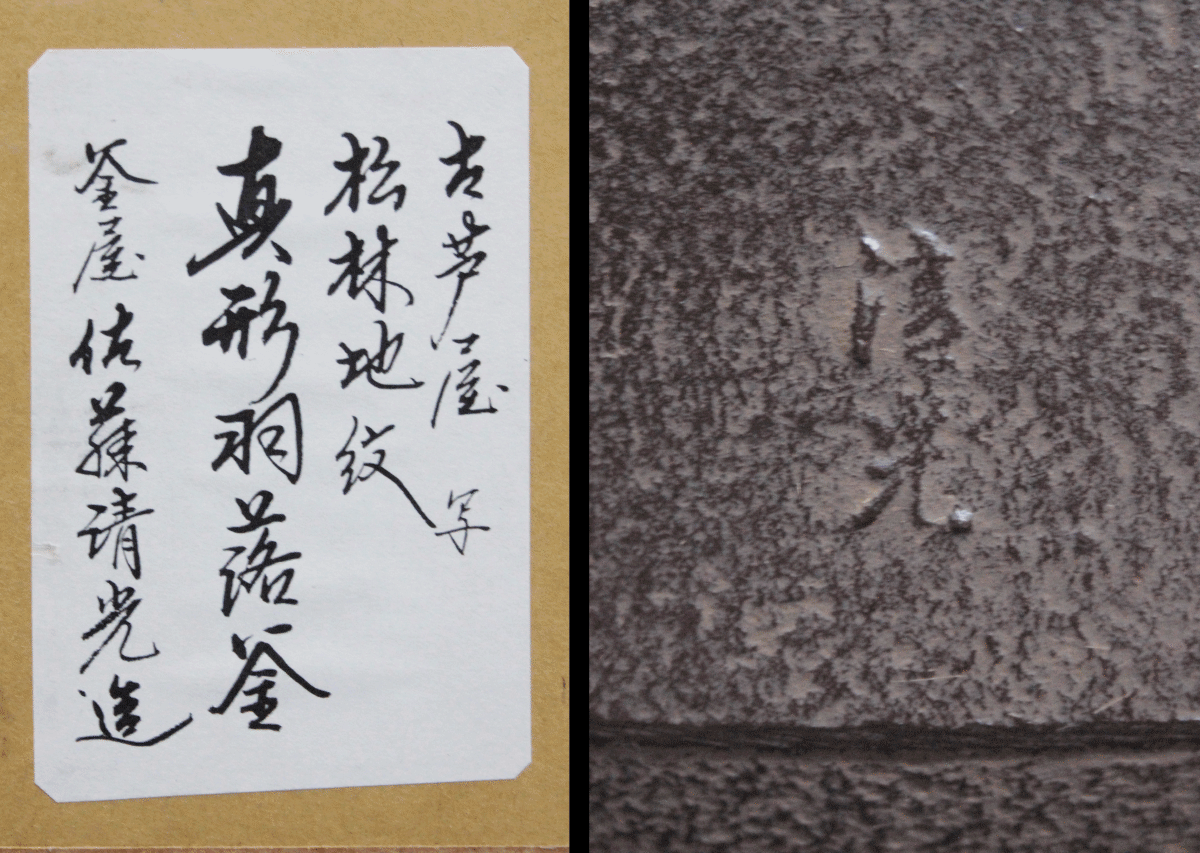 古芦屋 写
松林地紋
真形羽落釜
釜屋 佐藤清光造
清光